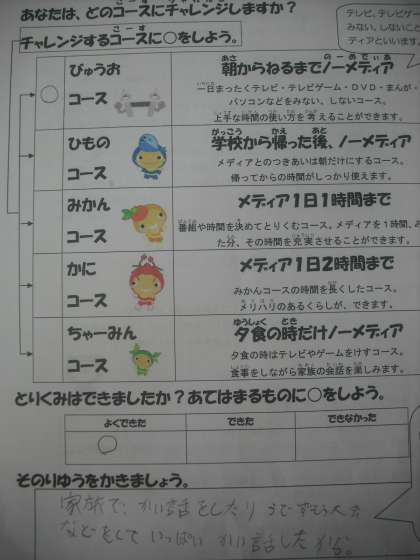 あなたは、どのコースにチャレンジしますか?
チャレンジするコースに○をしよう。
テレビ、テレビゲーム
みない、しないこと
ディアといいます。
○
びゅうお
コース
朝からねるまでノーメディア
一日まったくテレビ・テレビゲーム・DVD・まんが・
パソコンなどをみない、しないコース。
上手な時間の使い方を考えることができます。
ひもの
コース
学校から帰った後、ノーメディア
メディアとのつきあいは朝だけにするコース。
帰ってからの時間がしっかり使えます。
みかん
コース
メディア1日1時間まで
番組や時間を決めてとりくむコース。メディアを1時間、み
た分、その時間を充実させることができます。
かに
コース
メディア1日2時間まで
みかんコースの時間を長くしたコース。
メリハリのあるくらしが、できます。
ちゃーみん
コース
夕食の時だけノーメディア
夕食の時はテレビやゲームをけすコース。
食事をしながら家族の会話を楽しみます。
とりくみはできましたか?あてはまるものに○をしよう。
よくできた
できた
できなかった
○
そのりゆうをかきましょう。
家族で、かい話をしたりうでずもう大会
などをして いっぱい かい話したから。